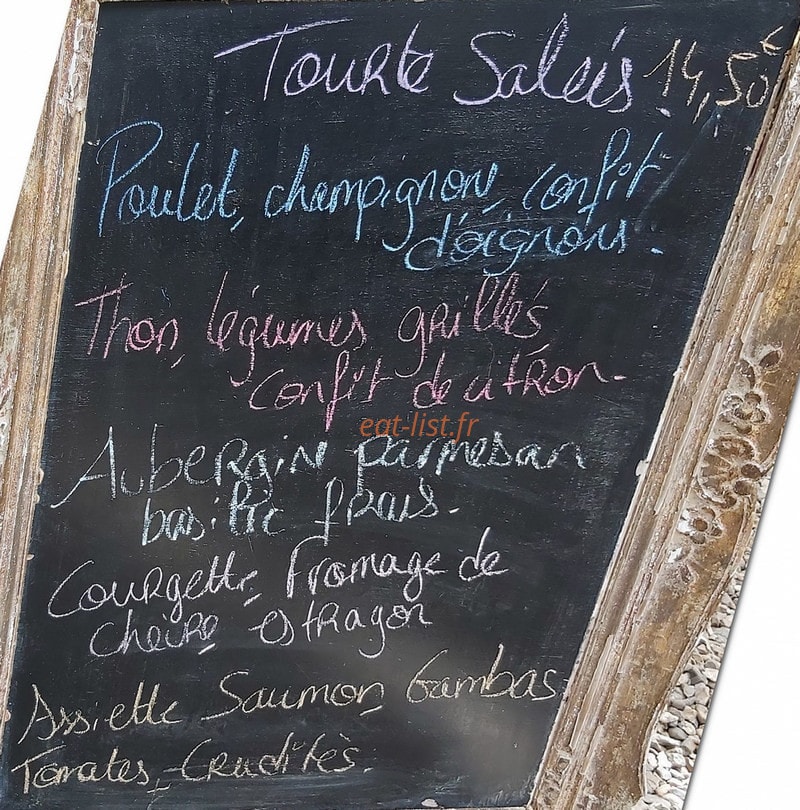 Tourte Salées 14,50€
Poulet, champignon, confit
d'oignons.
Thon, légumes grillés,
confit de citron.
eat-list.fr
Aubergine parmesan
basilic frais.
Courgette, fromage de
chèvre estragon
Assiette Saumon Gambas
Tomates, Crudités.